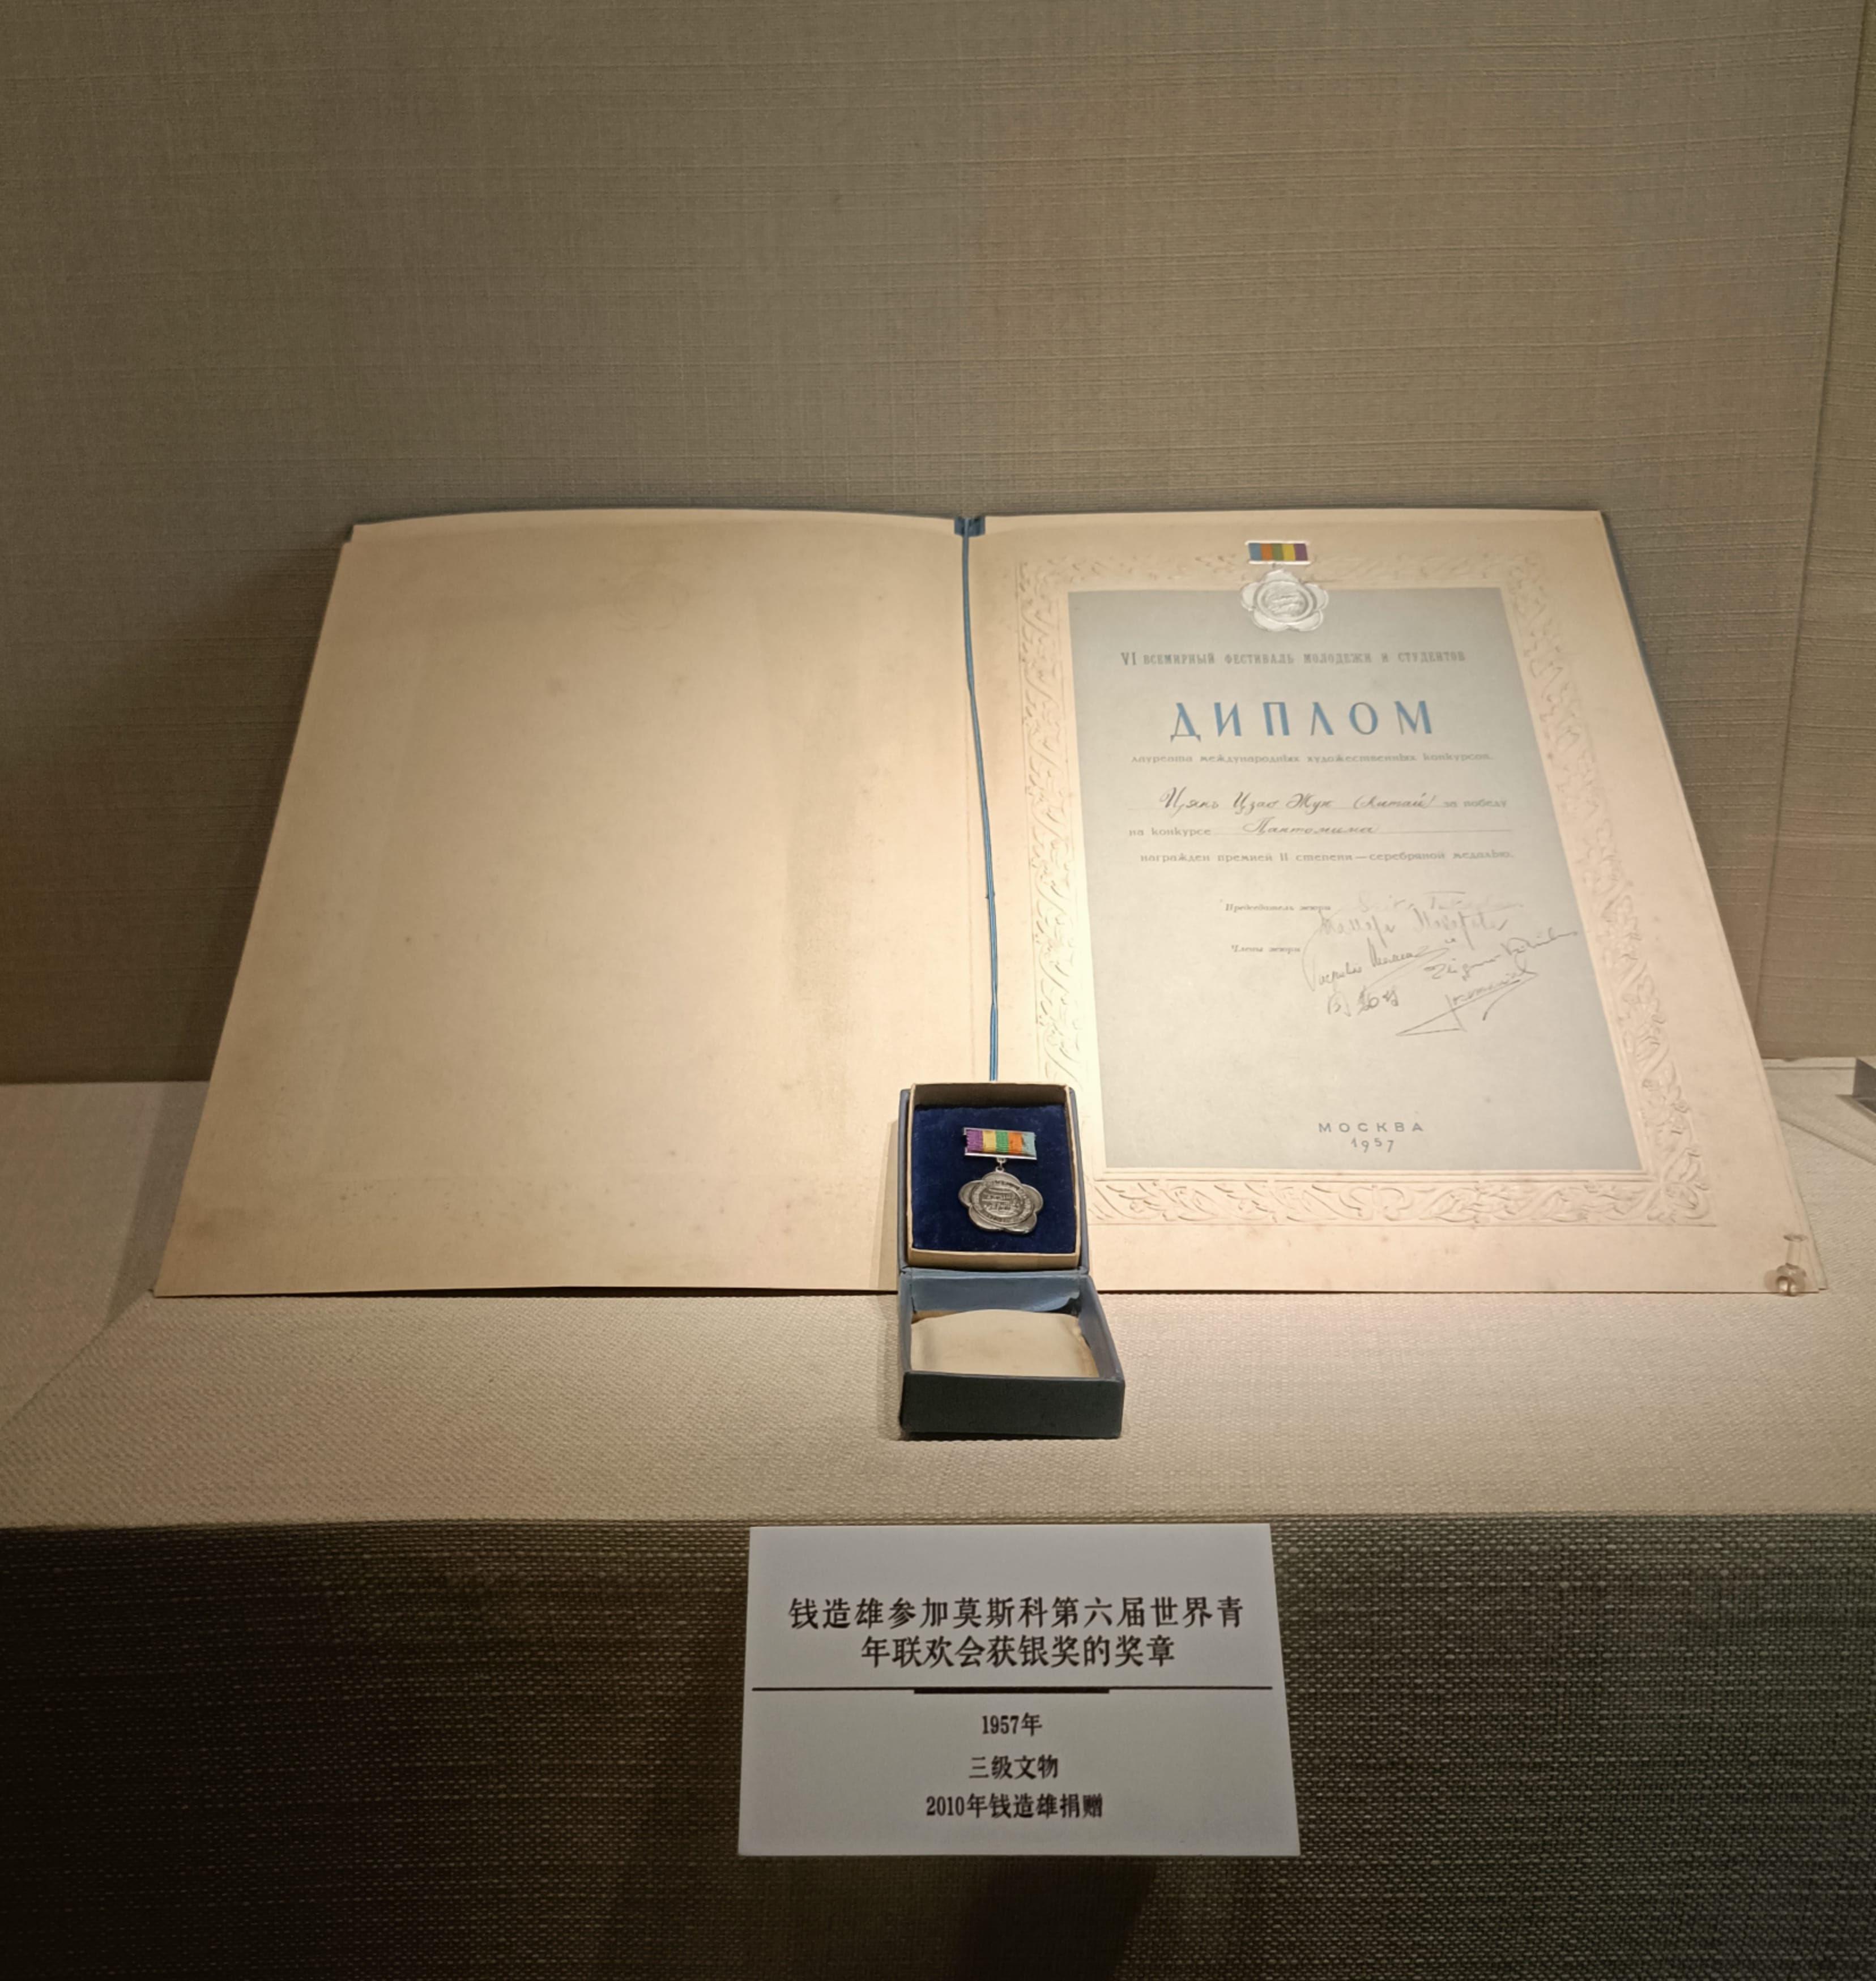 VI ВСЕМИРНЫЙ ФЕСТИВАЛЬ МОЛОДЕЖИ И СТУДЕНТОВ
ДИПЛОМ
лауреата международных художественных конкурсов
Цянь Цзао Жук (Китай) за победу
на конкурсе Пантомима
награжден премией II степени — серебряной медалью.
Председатель жюри
Члены жюри
МОСКВА
1957
钱造雄参加莫斯科第六届世界青
年联欢会获银奖的奖章
1957年
三级文物
2010年钱造雄捐赠